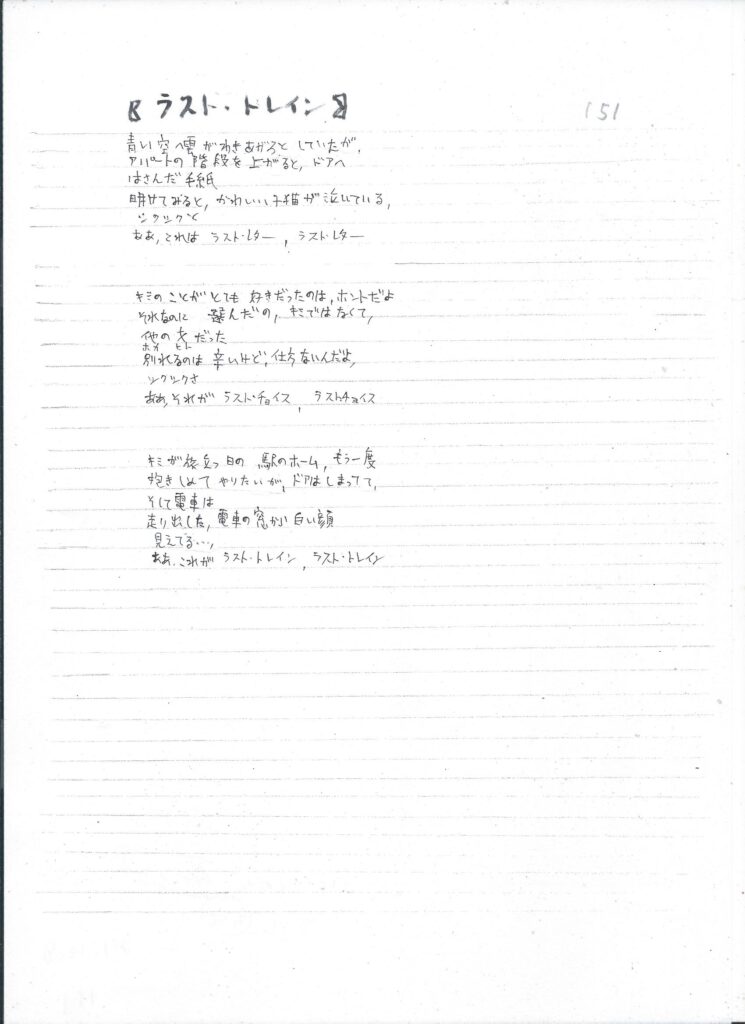 《ラスト・トレイン》
151
青い空へ雲がわきあがろうとしていたが、
アパートの階段を上がると、ドアへ
はさんだ手紙
開けてみると、かわいい子猫が泣いている、
シクシクと
ああ、これは ラスト・レター、ラスト・レター
キミのことがとても 好きだったのは、ホントだよ
それなのに 選んだの、キミではなくて、
他の女だった
ホカ ヒト
別れるのは 辛いけど、仕方ないんだよ、
シクシクさ
ああ、それが ラスト・チョイス、ラストチョイス
キミが旅立つ日の 駅のホーム、もう一度
抱きしめて やりたいが、ドアはしまってて、
そして電車は
走り出した、電車の窓から 白い顔
見えてる…、
ああ、これが ラスト・トレイン、ラスト・トレイン